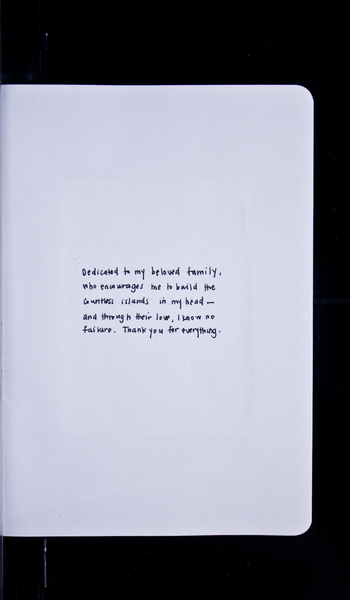 Dedicated to my beloved family,
who encourages me to build the
countless islands in my head —
and through their love, I know no
failure. Thank you for everything.